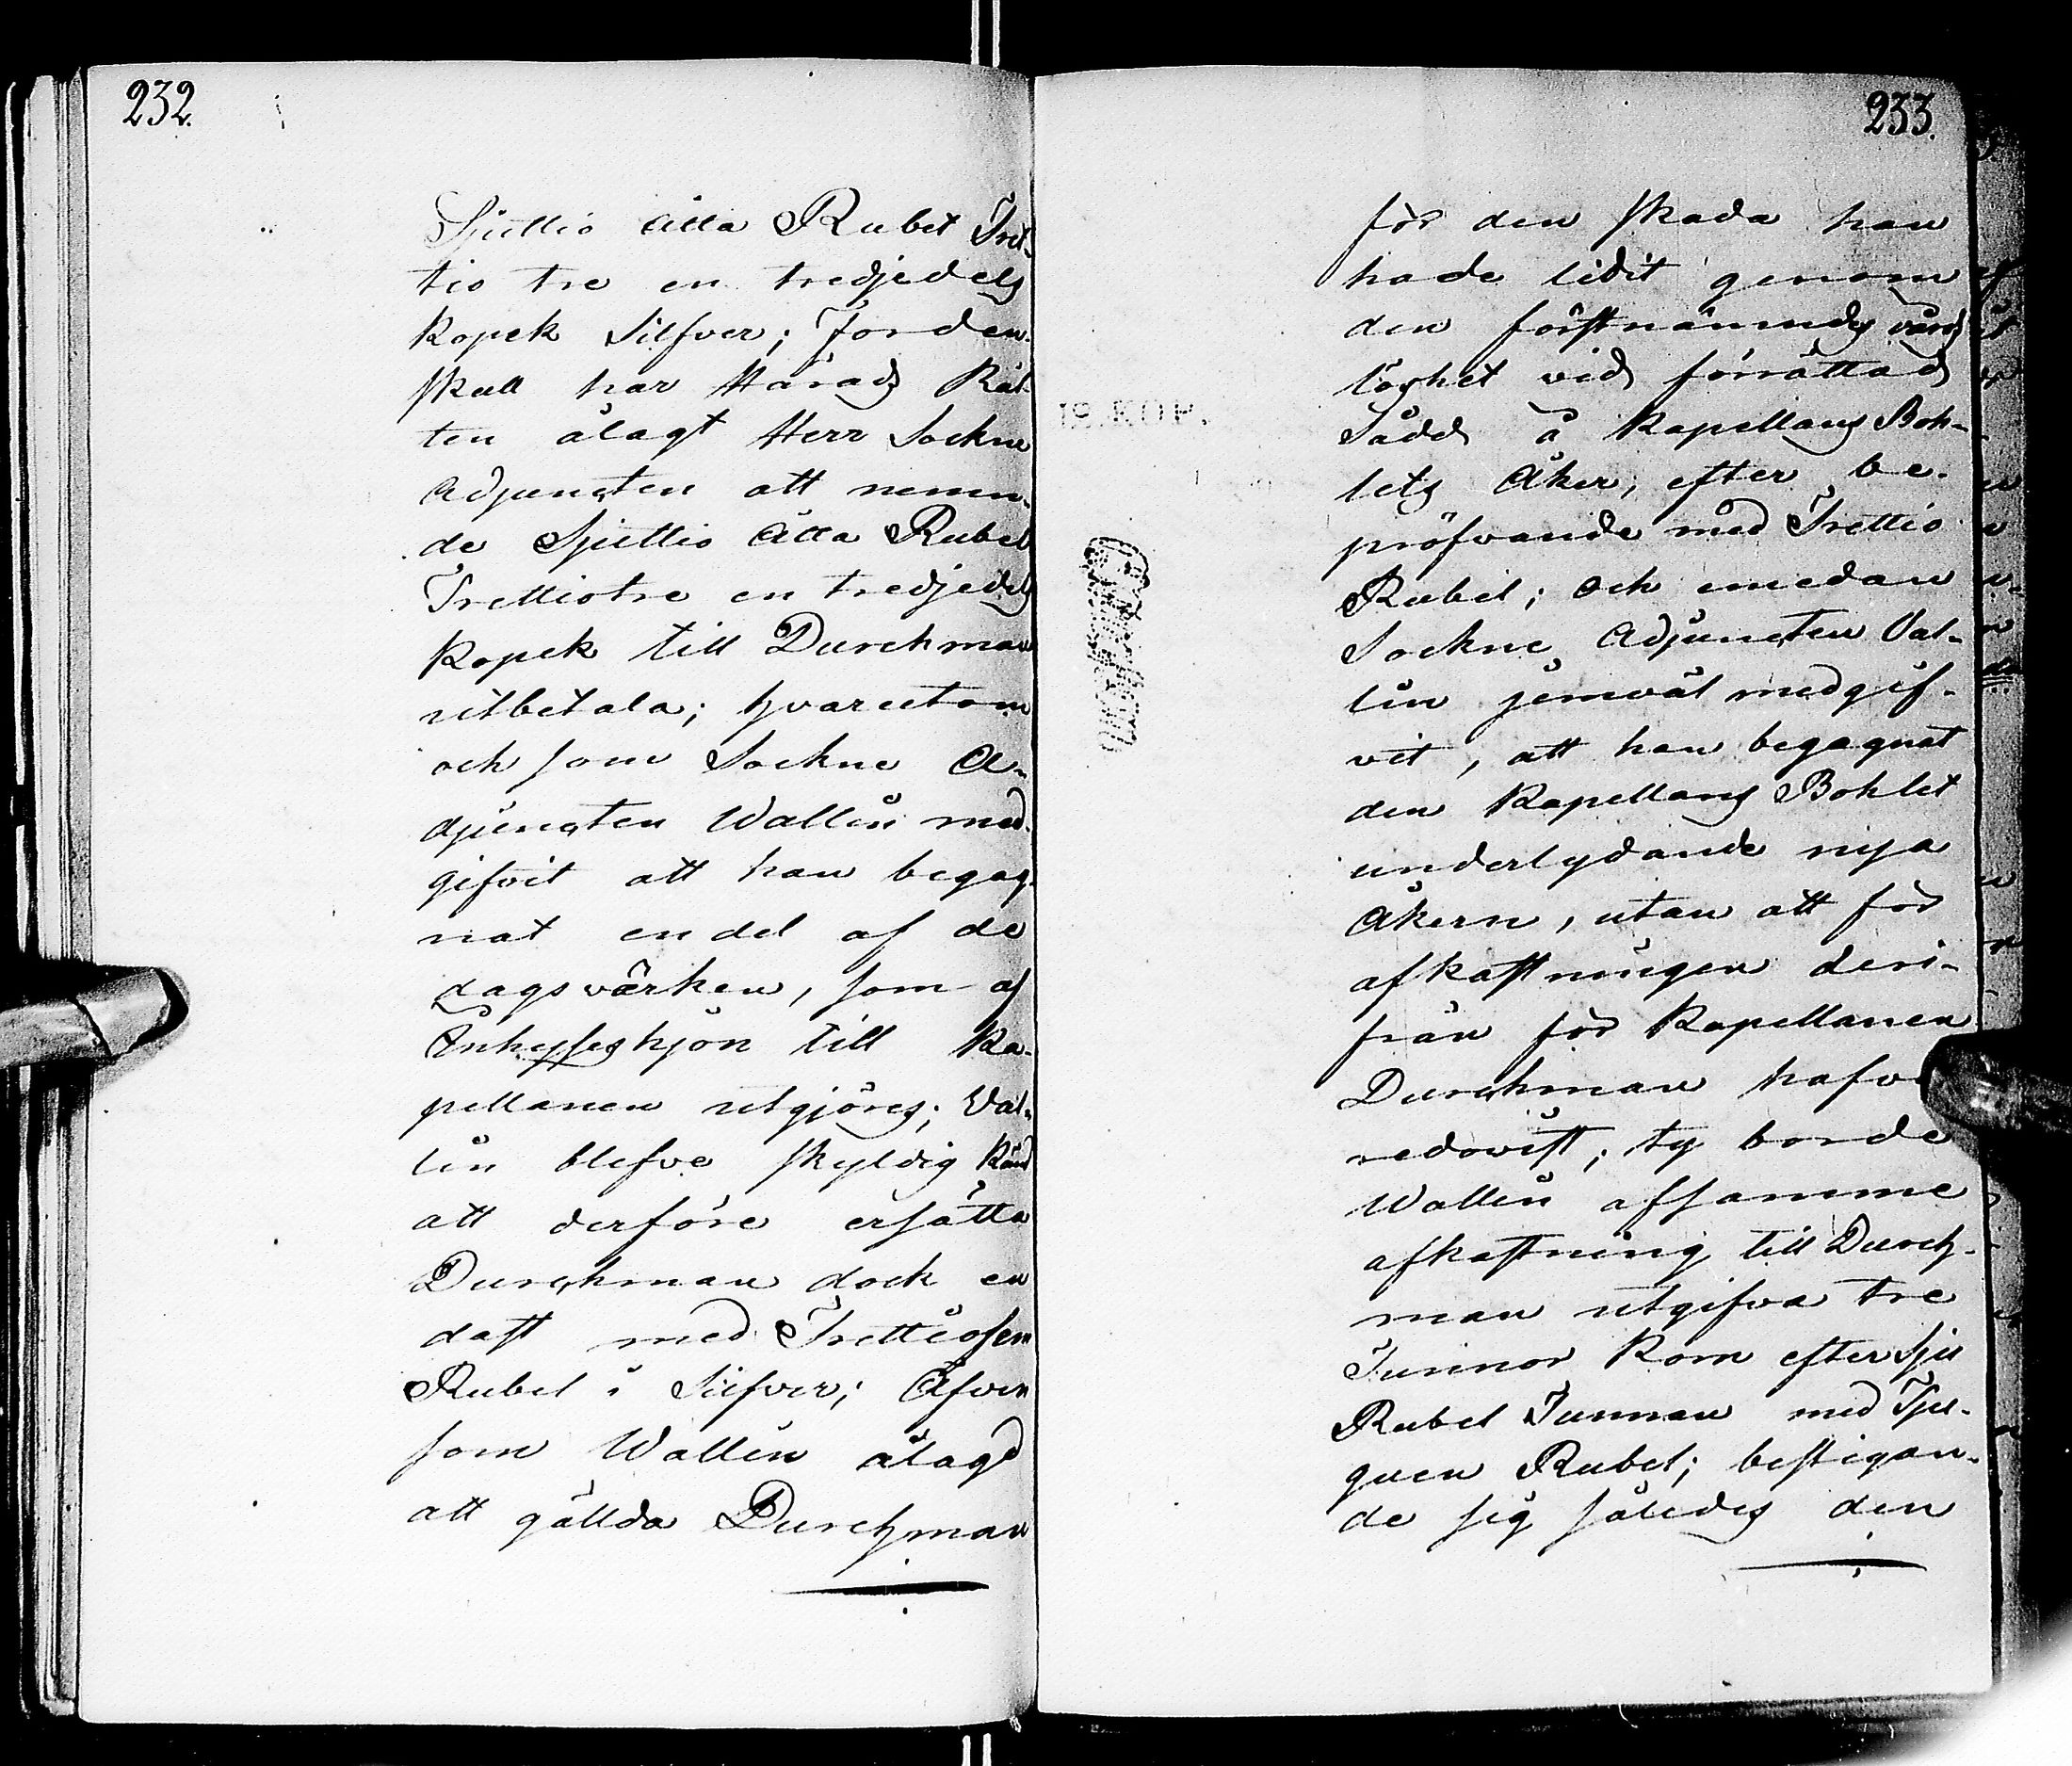 232.
Sjuttio åtta Rubel Tret-
tio tre en tredjedels
Kopek Silfver; fordén-
skull har Härads Rät-
ten ålagt Herr Sockne
Adjuncten att nemn-
de Sjuttio Åtta Rubel
Trettiotre en tredjedels
Kopek till Durchman
utbetala; hvarutom
och som Sockne A-
djuncten Wallin med-
gifvit att han begag-
nat en del af de
dagsvärken, som af
Inhyseshjon till Ka-
pellanen utgjöres; Val-
lin blefve skyldig känd
att derföre ersätta
Durchman dock en
dast med Trettiofem
Rubel i Silfver; Äfven
som Wallin ålagd
att gällda Durchman
233.
för den skada han
hade lidit genom
den förstnämndes vårds
löshet vid förrättad
Sådd å Kapellans Boh-
lets Åker, efter be-
pröfvande med Trettio
Rubel; och emedan
Sockne Adjuncten Val-
lin jemväl medgif-
vit, att han begagnat
den Kapellans Bohlet
underlydande nya
Åkern, utan att för
afkastningen deri-
från för Kapellanen
Durchman hafva
redovist; ty borde
Wallin af samme
afkastning till Durch-
man utgifva tre
Tunnor Korn efter Sju
Rubel Tunnan med Tju-
guen Rubel; bestigan-
de sig således den
12.KOP.